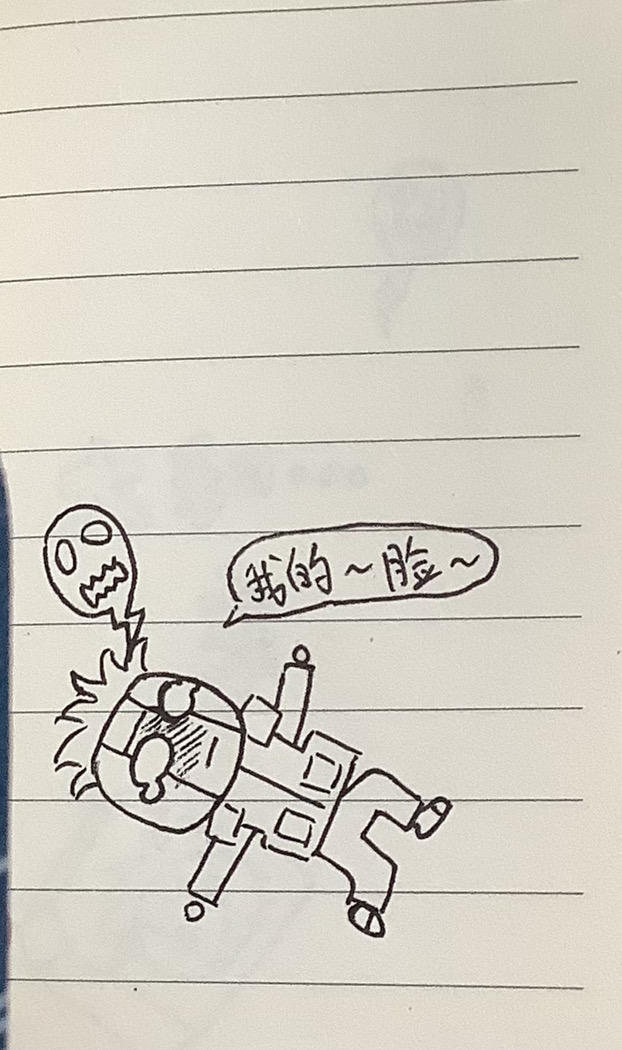 我的~脸~